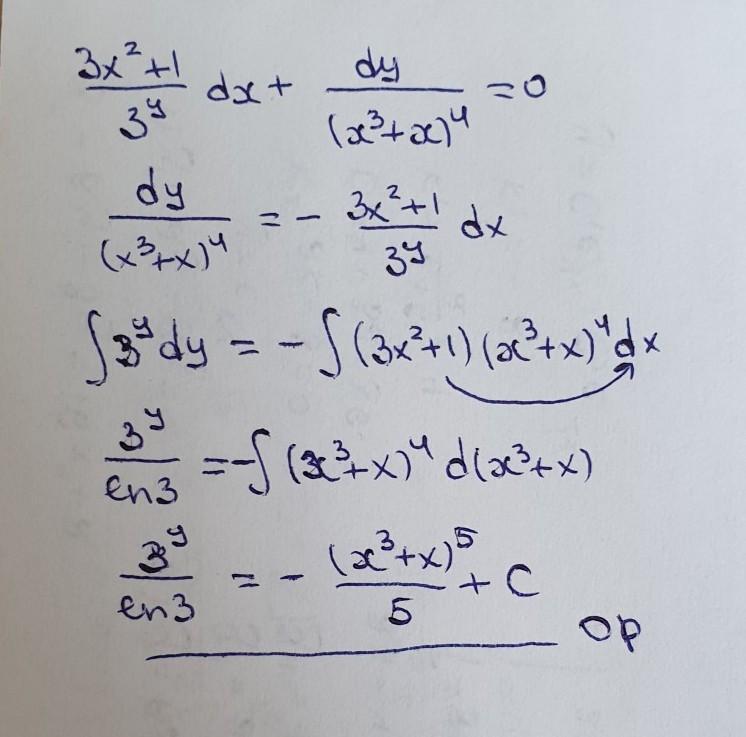 (3x²+1)/3^y dx + dy/(x³+x)⁴ = 0
dy/(x³+x)⁴ = - (3x²+1)/3^y dx
∫3^y dy = - ∫(3x²+1)(x³+x)⁴dx
3^y/ln3 = -∫(x³+x)⁴ d(x³+x)
3^y/ln3 = - (x³+x)⁵/5 + C
Op